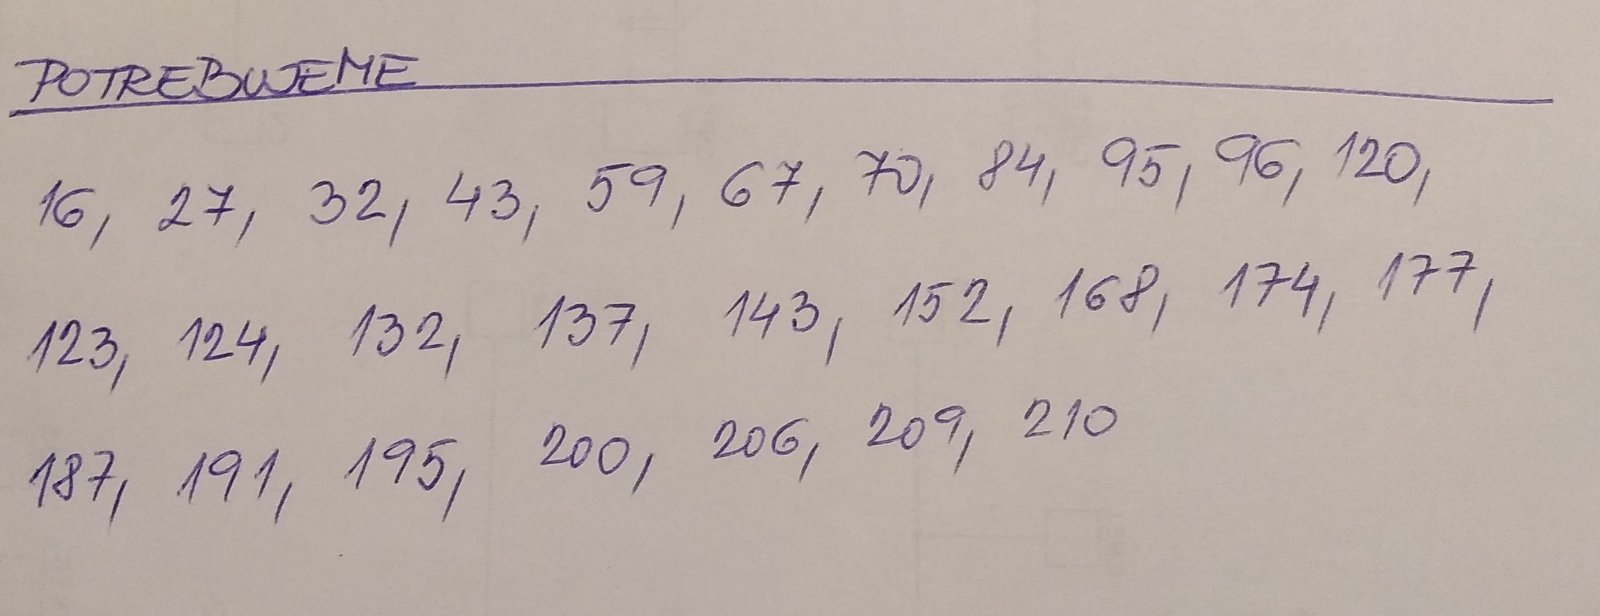 POTREBUJEME
16, 27, 32, 43, 59, 67, 70, 84, 95, 96, 120,
123, 124, 132, 137, 143, 152, 168, 174, 177,
187, 191, 195, 200, 206, 209, 210